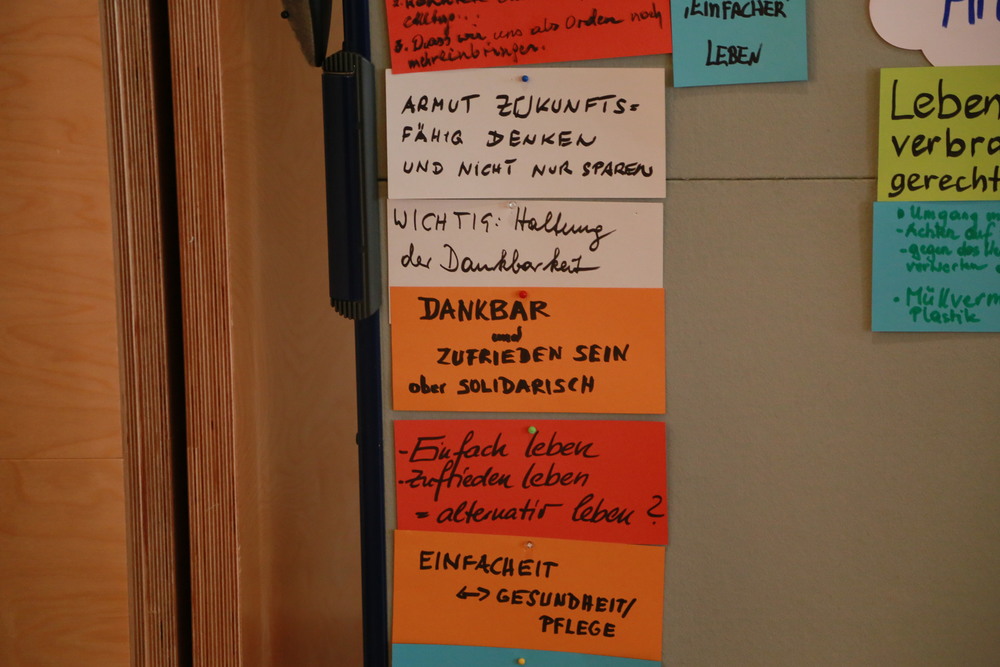 3. Dass wir uns als Orden noch
mehr einbringen.
'EINFACHER'
LEBEN
ARMUT ZUKUNFTS=
FÄHIG DENKEN
UND NICHT NUR SPAREN
WICHTIG: Haltung
der Dankbarkeit
DANKBAR
und
ZUFRIEDEN SEIN
aber SOLIDARISCH
- Einfach leben
- Zufrieden leben
= alternativ leben?
EINFACHEIT
<-> GESUNDHEIT/
PFLEGE
Leben
verbra
gerecht
Umgang
- Achten auf
- gegen das
verwerten
• Müllverm
Plastik